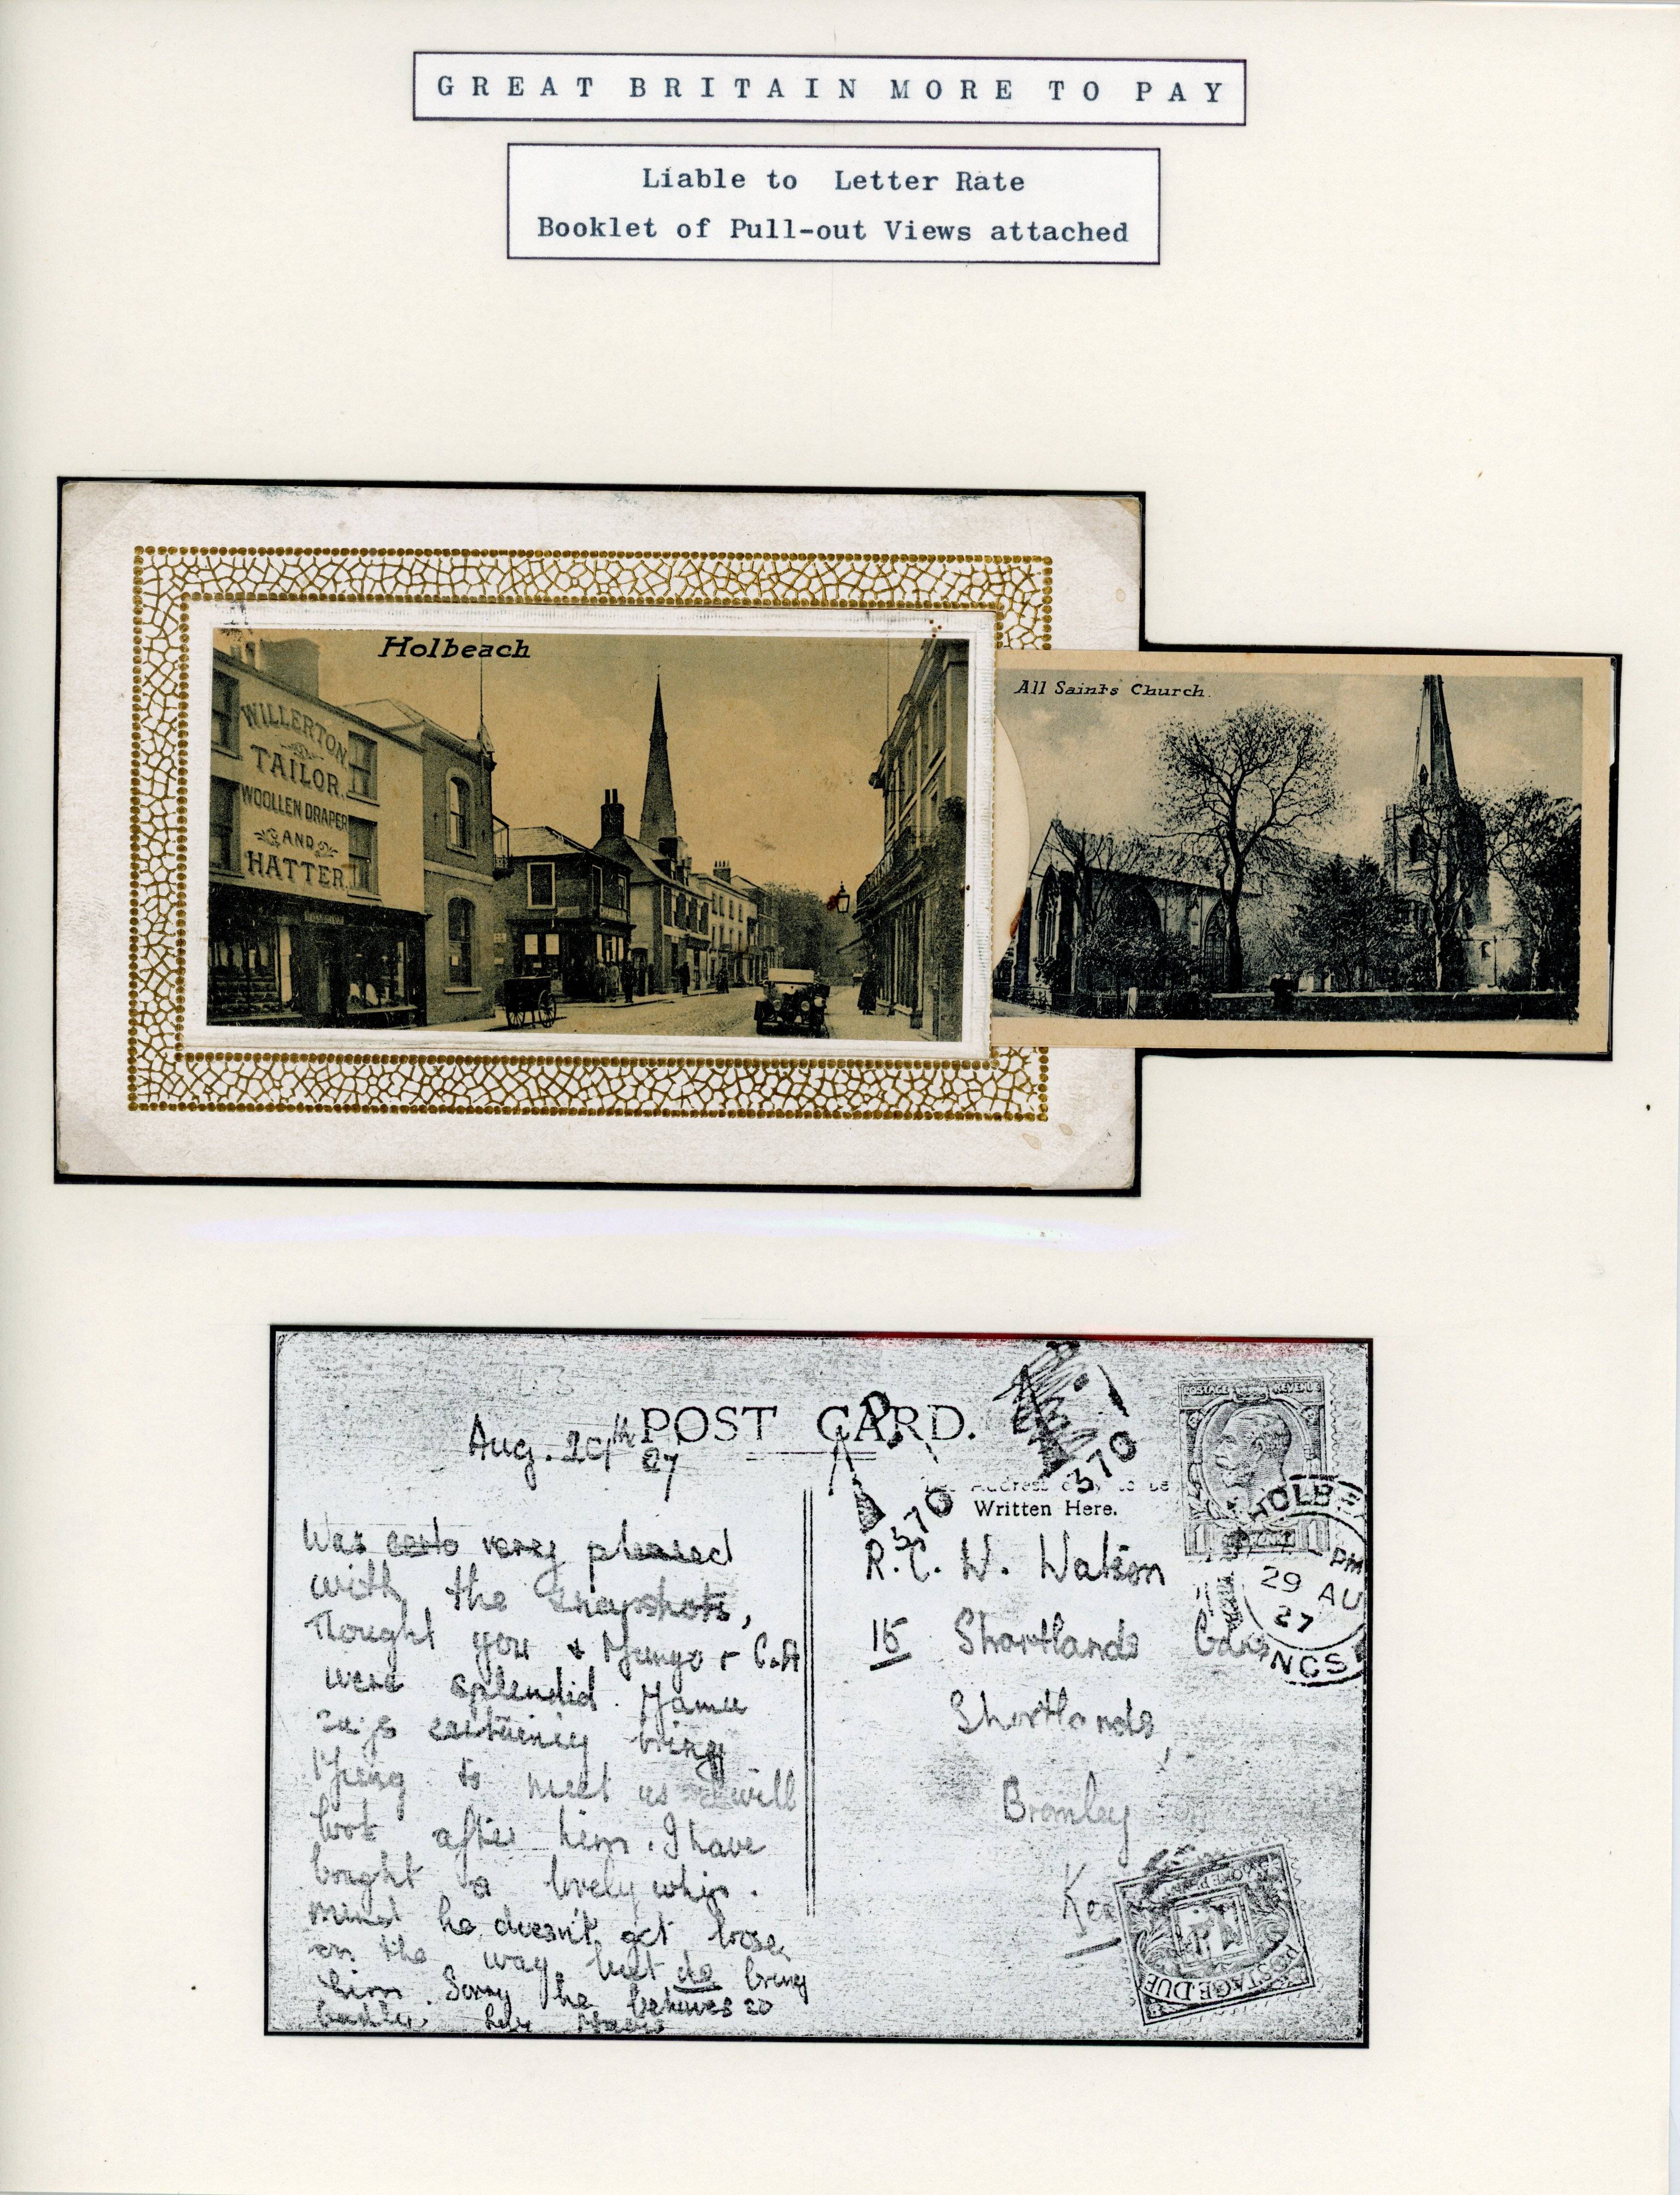 GREAT BRITAIN MORE TO PAY
Liable to Letter Rate
Booklet of Pull-out Views attached
Holbeach
WILLERTON
TAILOR.
WOOLLEN DRAPER
AND
HATTER.
All Saints Church.
POST CARD.
Aug. 29th 27
Address only to be
Written Here.
370
370
POSTAGE REVENUE
HOLBE
PM
29 AU
27
NCS
R.C. W. Watson
15 Shortlands Gdns
Shortlands,
Bromley
Ken
POSTAGE DUE
Was very pleased
with the snapshots,
Thought you & +
were splendid.
bring
to meet us I will
look after him. I have
bought a lovely whip.
Mind he doesn't get loose
on the way, but do bring
him. Sorry he behaves so
badly.